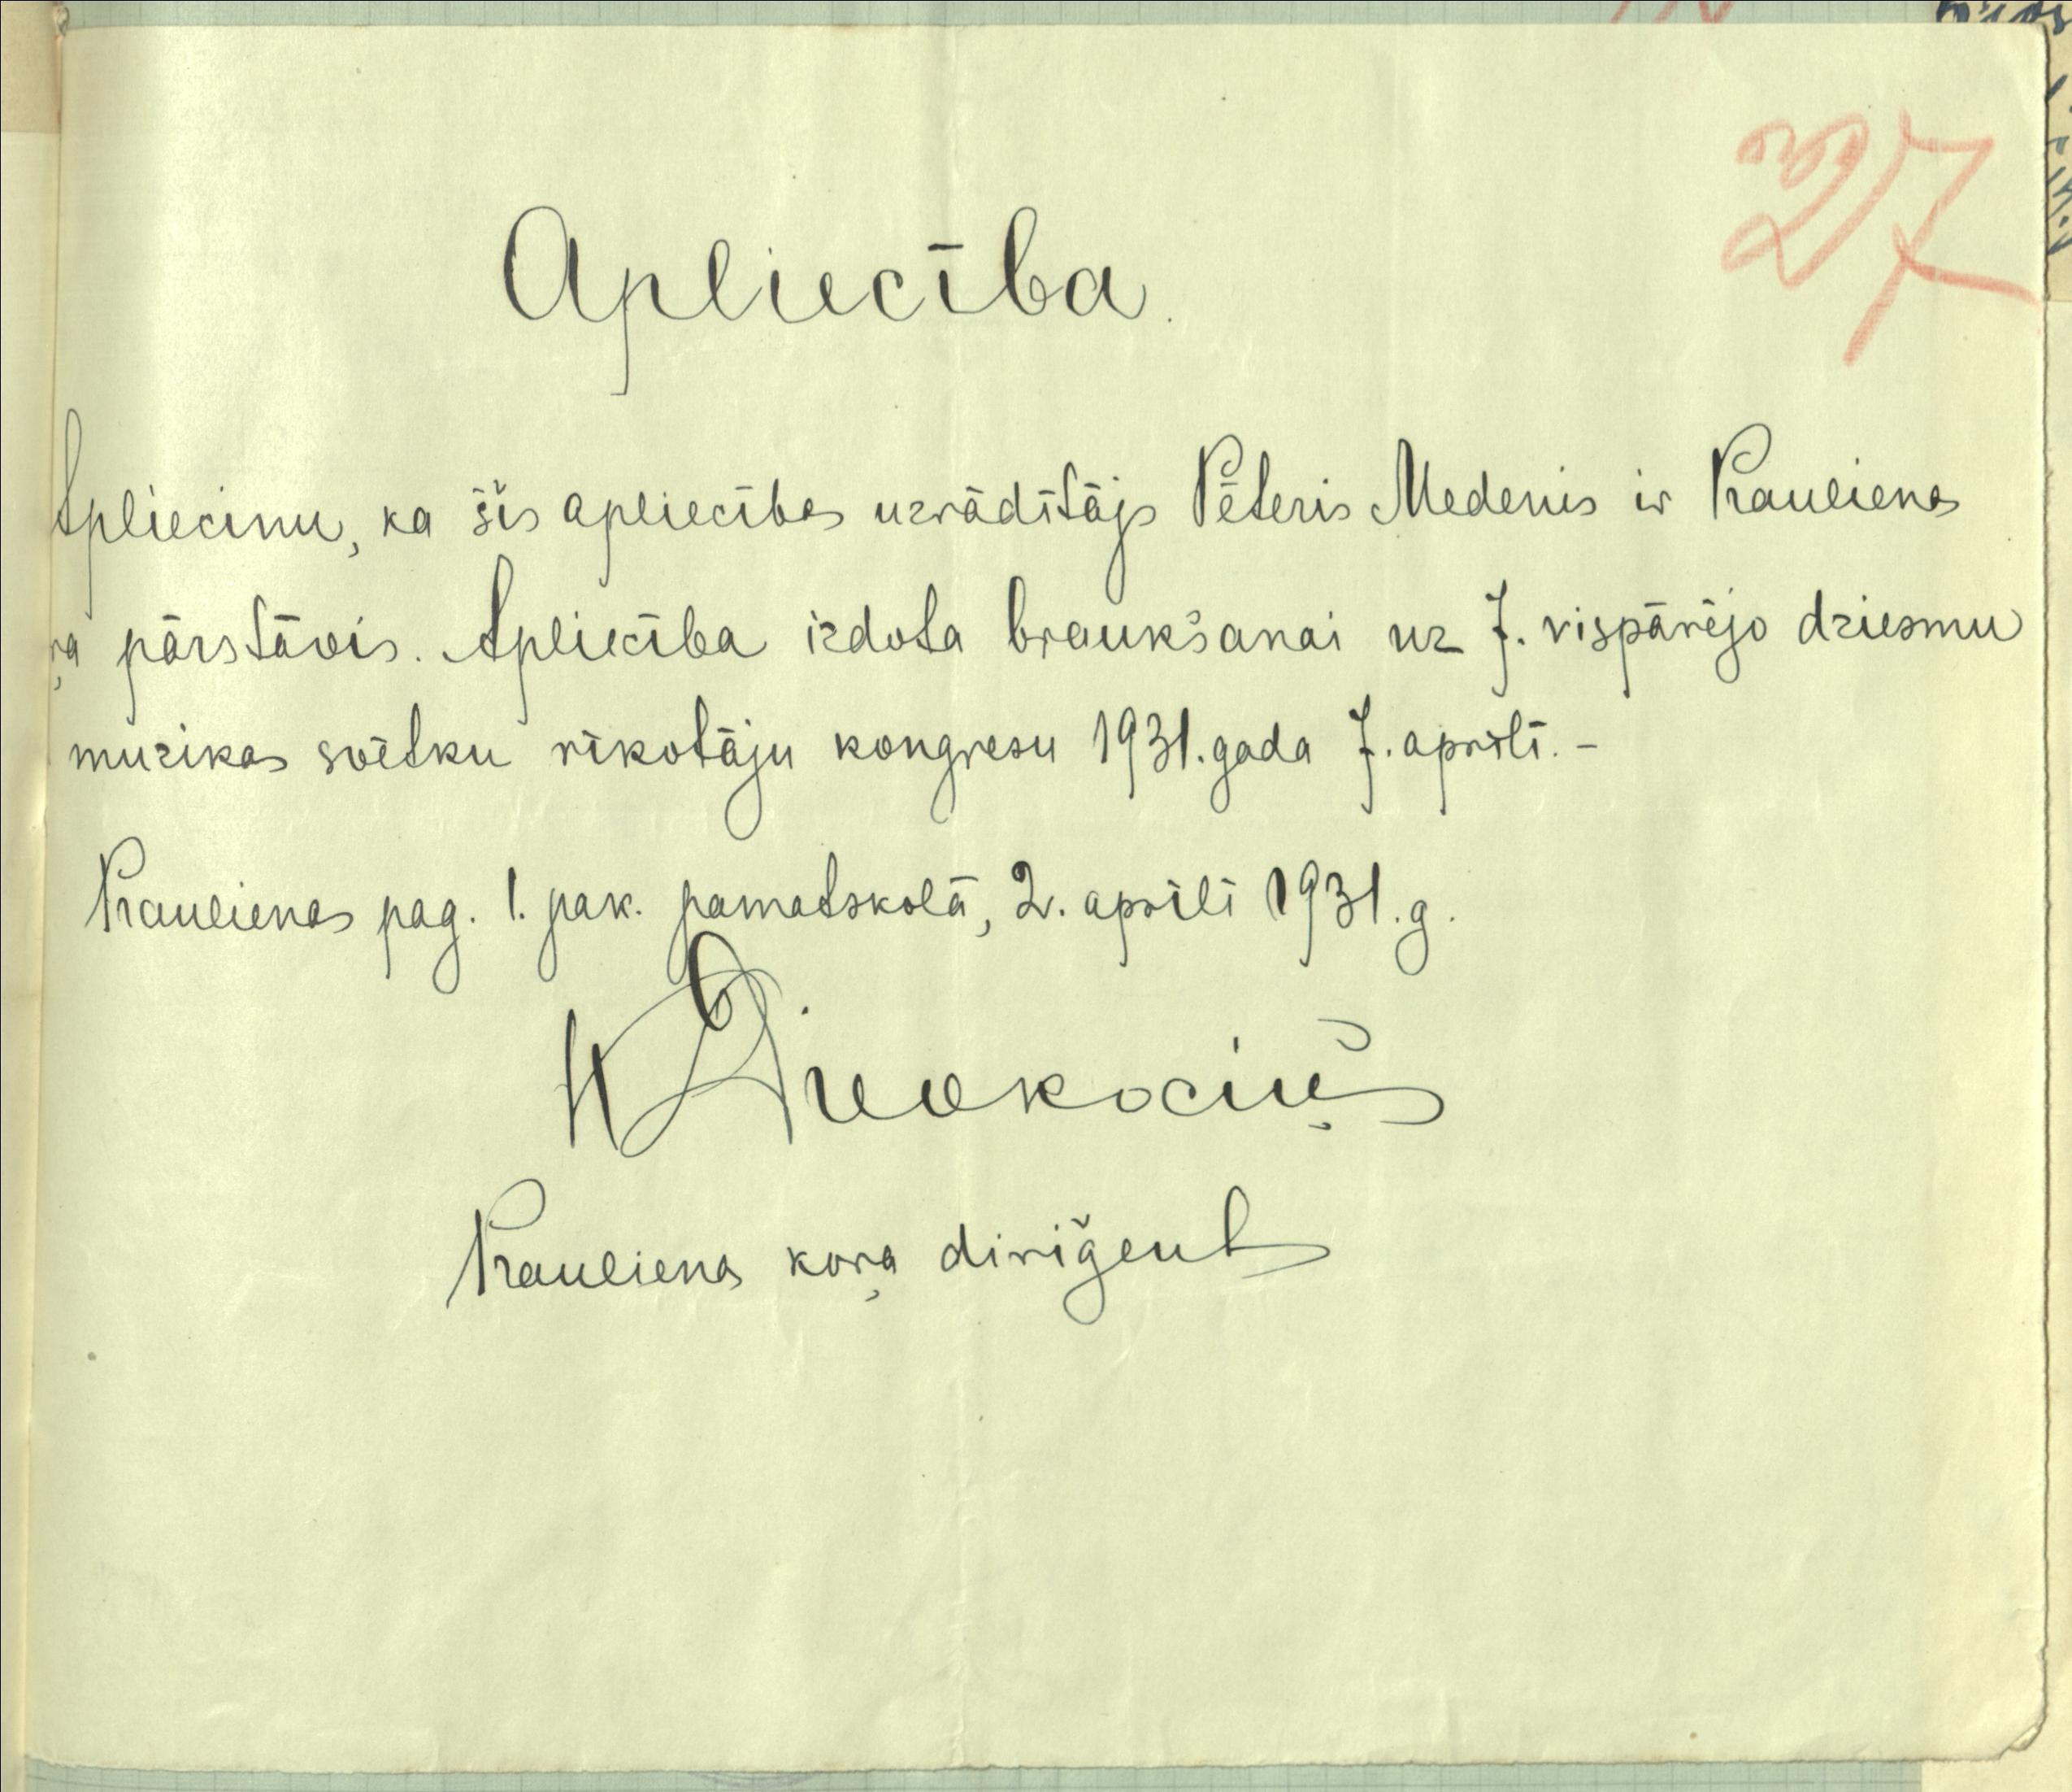 27
Apliecība.
Apliecinu, ka šīs apliecības uzrādītājs Pēteris Medenis ir Praulienas
ŗa pārstāvis. Apliecība izdota braukšanai uz 7. vispārējo dziesmu
muzikas svētku rīkotāju kongresu 1931. gada 7. aprīlī. -
Praulienas pag. 1. pak. pamatskolā, 2. aprīlī 1931. g.
Praulienas koŗa diriģents